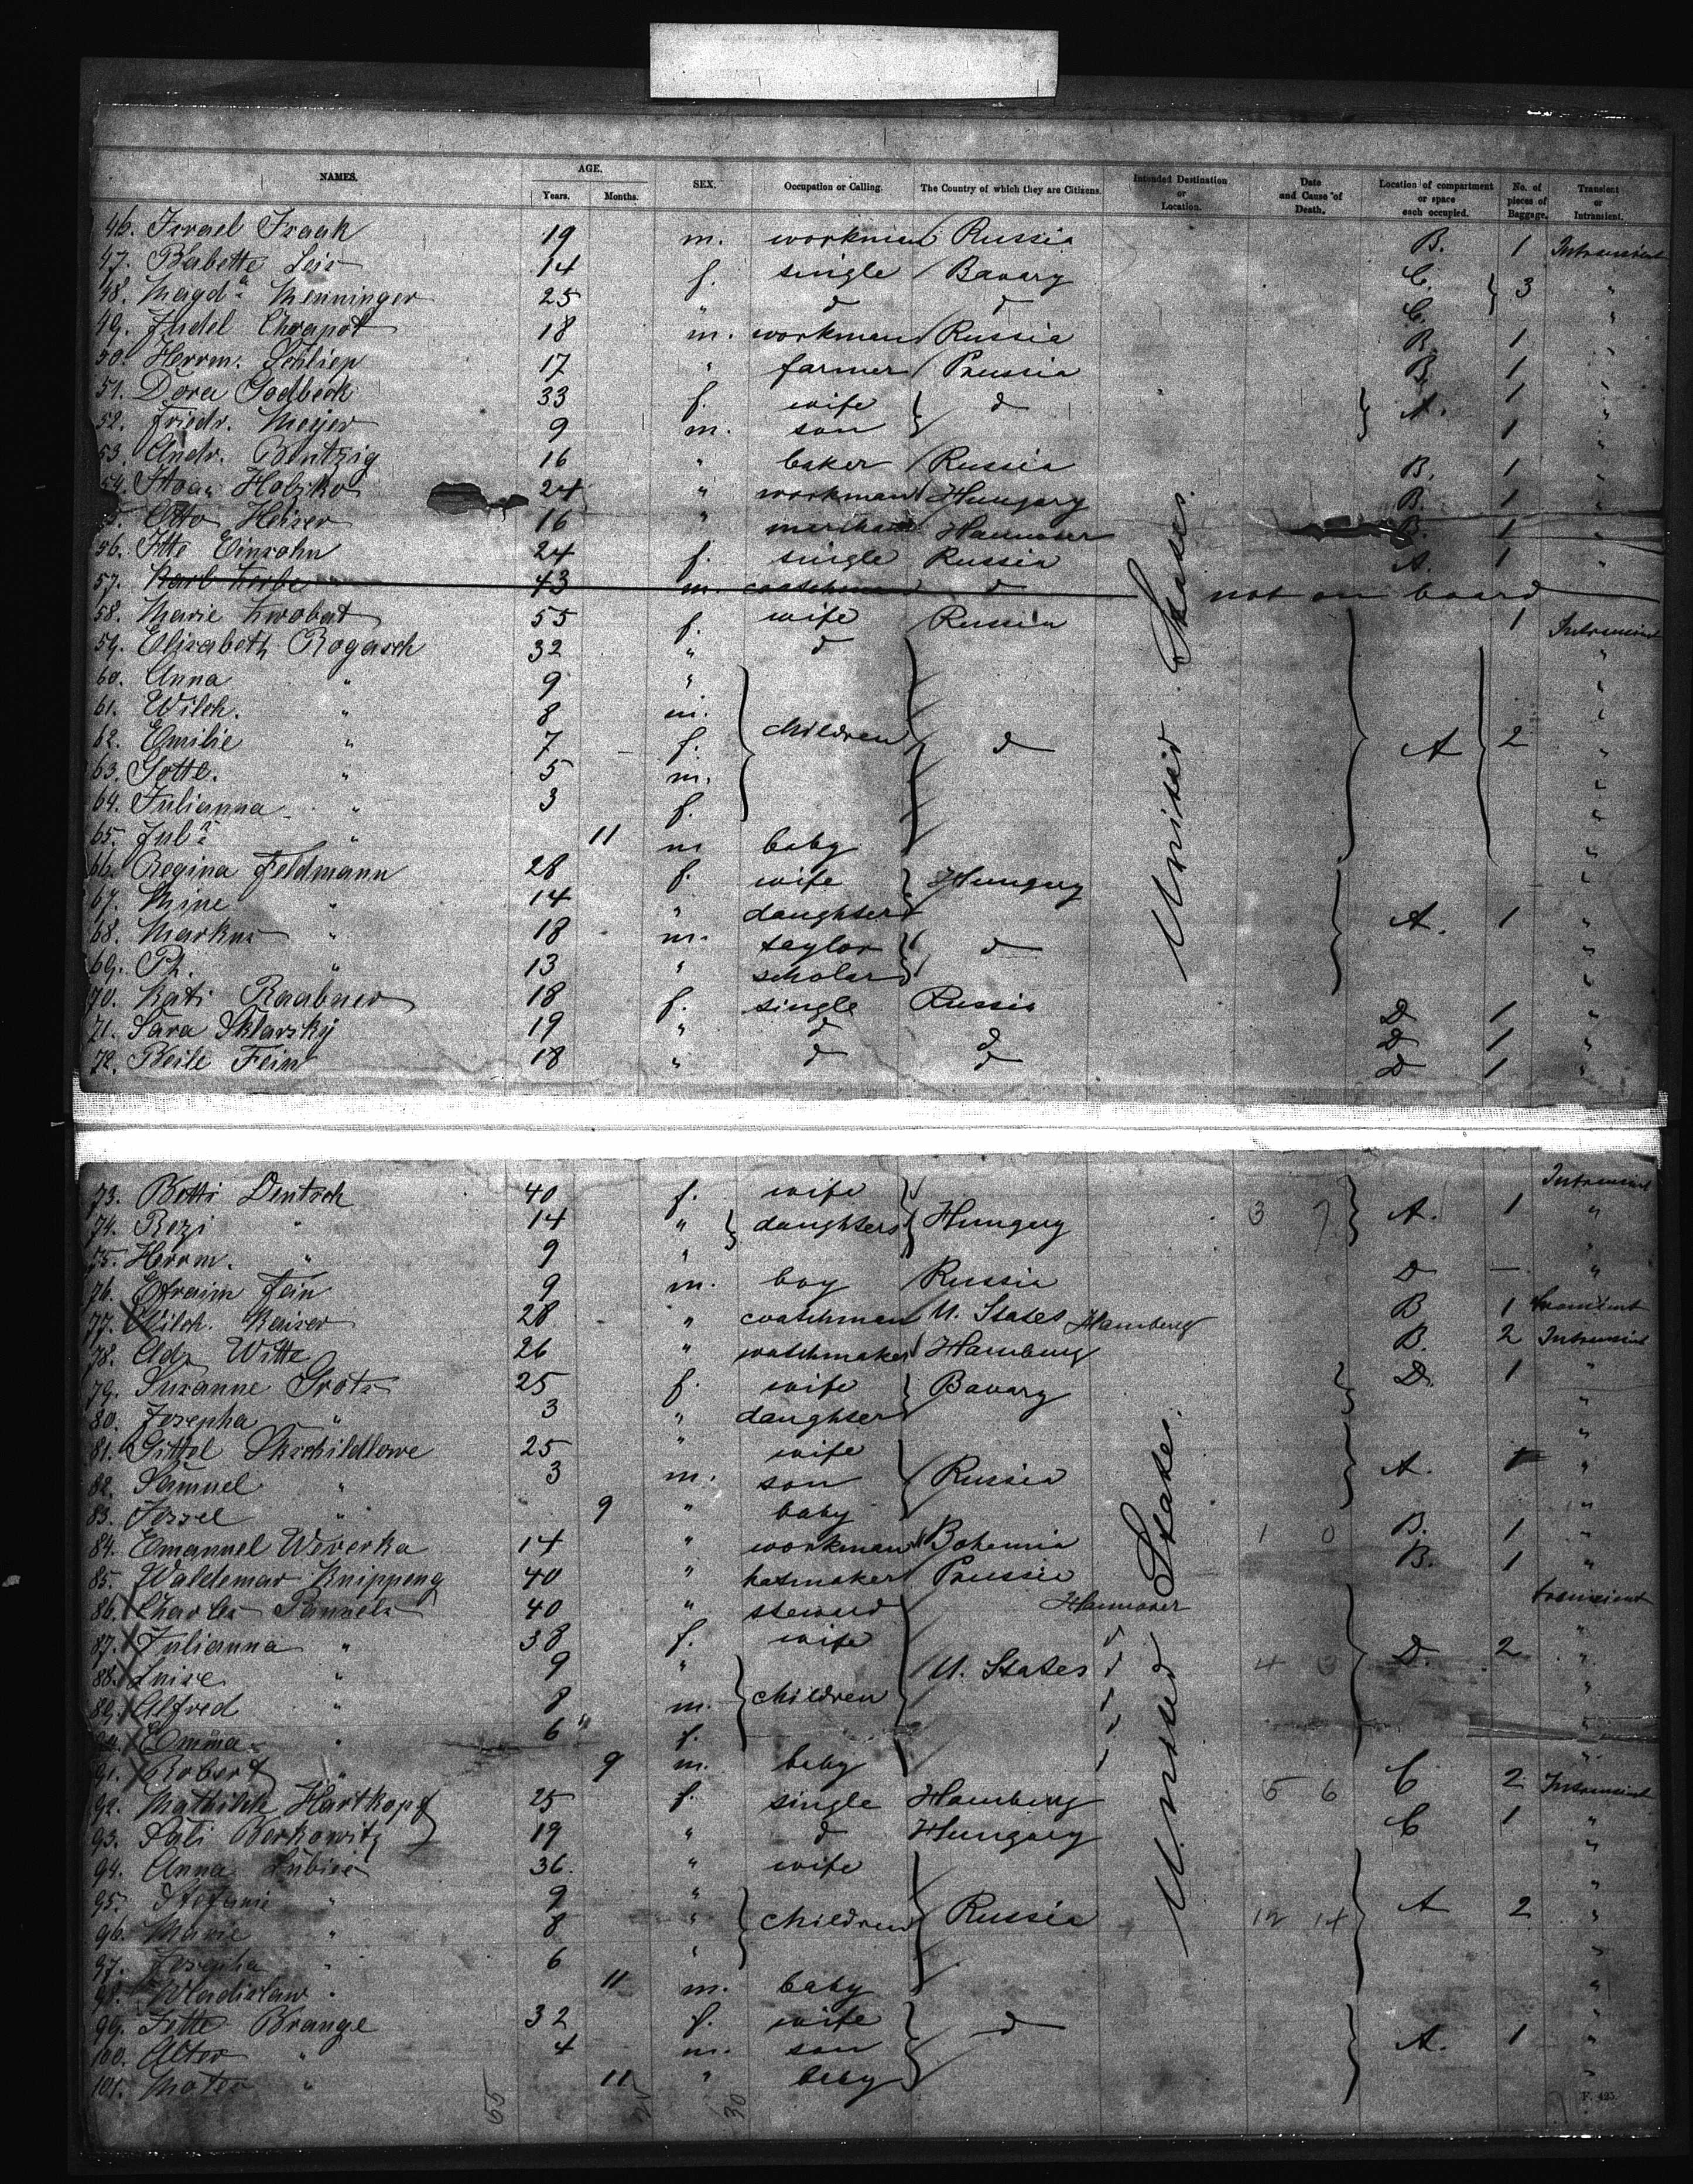 NAMES. AGE. Years. Months. SEX. Occupation or Calling. The Country of which they are Citizens. Intended Destination or Location. Date and Cause of Death. Location of compartment or space each occupied. No. of pieces of Baggage. Transient or Intransient.
46. Israel Isaak 19 m. workman Russia B. 1 Intransient
47. Babette Leis 14 f. single Bavary C. } 3 "
48. Magda Menninger 25 " d d C. "
49. Judel Chrapot 18 m. workman Russia B. 1 "
50. Herrm. Schliep 17 " farmer Prussia B. 1 "
51. Dora Godbeck 33 f. wife } d } A. 1 "
52. Friedr. Meijer 9 m. son 1 "
53. Andr. Bentzig 16 " baker Russia B. 1 "
54. Holzko 24 " workman Hungary B. 1 "
Otto Heiser 16 " merchant Hannover B. 1 "
56. Itte Einsohn 24 f. single Russia A. 1 "
57. Karl 43 m. coatchman d not on board
58. Marie 55 f. wife Russia 1 Intransient
59. Elisabeth Rogasch 32 " d "
60. Anna " 9 " "
61. Wilh. " 8 m. "
62. Emilie " 7 f. children d A 2 "
63. Gottl. " 5 m. "
64. Julianna " 3 f. "
65. Jul. " 11 m baby "
66. Regina Feldmann 28 f. wife } Hungary "
67. Mine " 14 " daughter A. 1 "
68. Markus " 18 m. taylor } d "
69. Ph. " 13 " scholar "
70. Kati Raabner 18 f. single Russia D 1 "
71. Sara Sklarsky 19 " d d D 1 "
72. Beile Fein 18 " d d D 1 "
United States.
73. Betti Deutsch 40 f. wife Intransient
74. Rezi " 14 " } daughters } Hungary 3 7 } A. 1 "
75. Herrm. " 9 " "
76. Efraim Fein 9 m. boy Russia D — "
77. Wilh. Kaiser 28 " coatchman U. States Hamburg B 1 transient
78. Ad. Witte 26 " watchmaker Hamburg B. 2 Intransient
79. Susanne Grotz 25 f. wife } Bavary } D. 1 "
80. Josepha " 3 " daughter "
81. Gittel 25 " wife "
82. Samuel " 3 m. son Russia A. 1 "
83. Jossel " 9 " baby "
84. Emanuel Weverka 14 " workman Bohemia 1 0 B. 1 "
85. Waldemar Knippeng 40 " hatmaker Prussia B. 1 "
86. Charles 40 " steward Hannover transient
87. Julianna " 38 f. wife d "
88. Luise " 9 " U. States d 4 3 D. 2 "
89. Alfred " 8 m. children d "
90. Emma " 6 f. d "
91. Robert " 9 m. baby "
92. Mathilde Hartkopf 25 f. single Hamburg 5 6 C 2 Intransient
93. Sali Berkowitz 19 " d Hungary C 1 "
94. Anna 36. " wife "
95. Stefanie " 9 " "
96. Marie " 8 " children Russia 12 14 A 2 "
97. Josepha " 6 " "
98. Wladislaw " 11 m. baby "
99. Jette Brange 32 f. wife } d "
100. Alter " 4 m. son A. 1 "
101. " 11 " baby "
United States.
55 30
F. 425